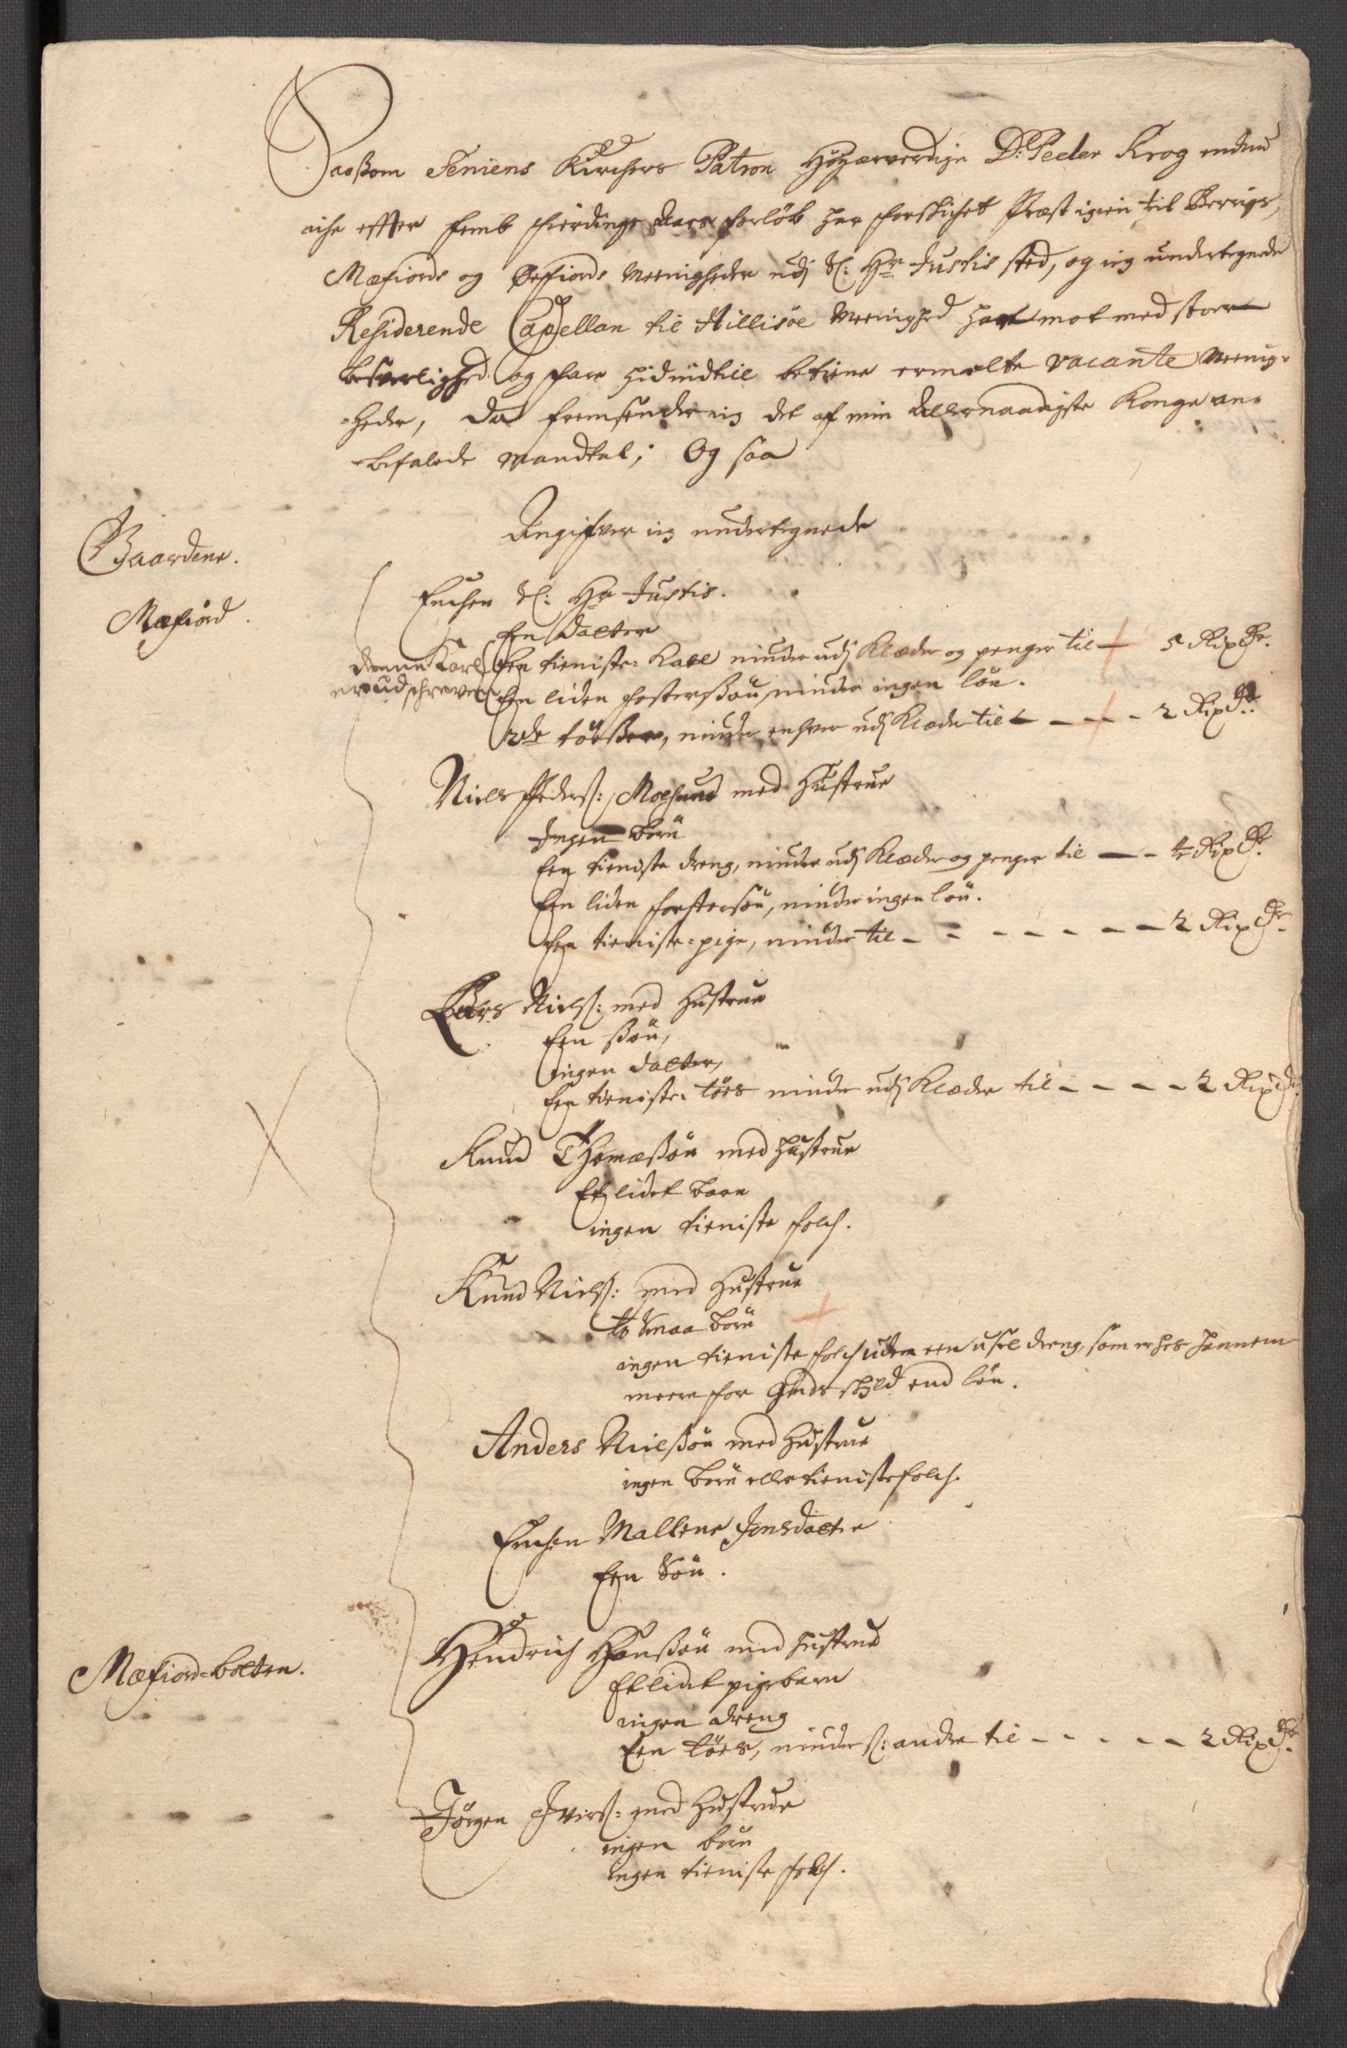 Saasom Seniens Kirckers Patron Høyærverdige Dr. Peder Krog endnu
iche effter femb fierdings Aars forløb har forskichet Præst igien til Bergs,
Mefiords og Øxfiords Meenigheder udj Sl: Hr Justis sted, og ieg undertegnede
Residerende Capellan til Hillisøe Meenighed har mot med stoer
besverlighed og fare hidindtil betiene ermelte vacante Meenig-
heder, Da fremsender ieg det af min Allernaadigste Konge an-
befalede Mandtal; Og saa
Angifver ieg undertegnede
Gaardene.
Mefiord.
Enchen Sl: Hr Justis.
Een Datter
denne Karl
er udschreven
Een tieniste Karl niuder udj Klæder og penger til 5 Rixdr.
Een liden fostersøn, niuder ingen løn.
2de tøsser, niuder enhver udj Klæder til - - - 2 Rixdr.
Niels Peders: Moesund med Hustrue
Ingen børn
Een tieniste dreng, niuder udj Klæder og penger til - - 4 Rixdr.
Een liden fostersøn, niuder ingen løn.
Een tieniste-pige, niuder til - - - - - - - 2 Rixdr.
Lars Niels: med Hustrue
Een søn,
ingen datter,
Een tieniste tøes niuder udj Klæder til - - - - 2 Rixdr.
Knud Thomæsøn med Hustrue
Et lidet barn
ingen tieniste folch.
Knud Niels: med Hustrue
to smaa børn
ingen tieniste folch uden een usel dreng, som er hos hannem
meere for Guds skyld end løn.
Anders Nielsøn med Hustrue
ingen børn eller tieniste folch.
Enchen Mallene Jonsdatter
Een Søn.
Mefiord-botten.
Hendrich Hansøn med Hustrue
Et lidet pigebarn
ingen dreng
Een tøes, niuder s: andre til - - - - - 2 Rixdr.
Jørgen Ivers: med Hustrue
ingen børn
ingen tieniste folch.